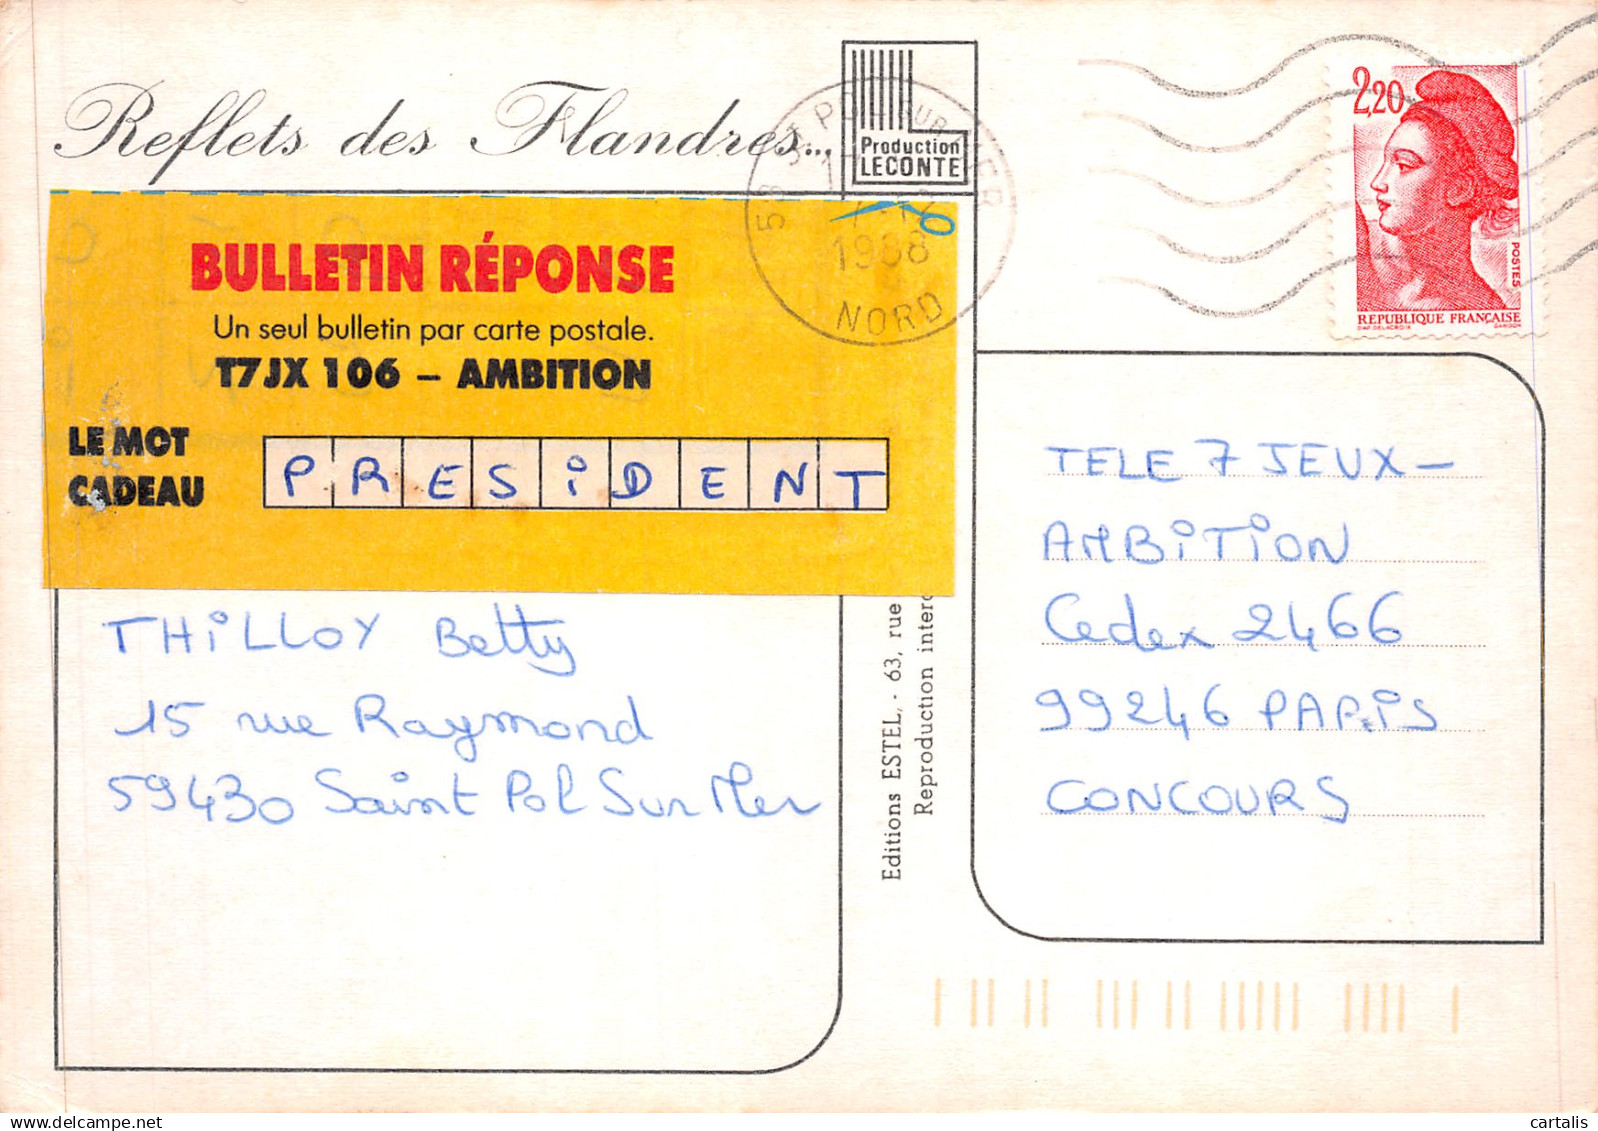 Reflets des Flandres...
Production
LECONTE
59 ST POL SUR MER
1988
NORD
2,20
POSTES
REPUBLIQUE FRANÇAISE
D'AP. DELACROIX GANDON
BULLETIN RÉPONSE
Un seul bulletin par carte postale.
T7JX 106 – AMBITION
LE MOT
CADEAU
PRESiDENT
THiLLOY Betty
15 rue Raymond
59430 Saint Pol Sur Mer
Editions ESTEL, - 63, rue
Reproduction interd
TELE 7 JEUX –
AMBiTiON
Cedex 2466
99246 PARiS
CONCOURS
cartalis